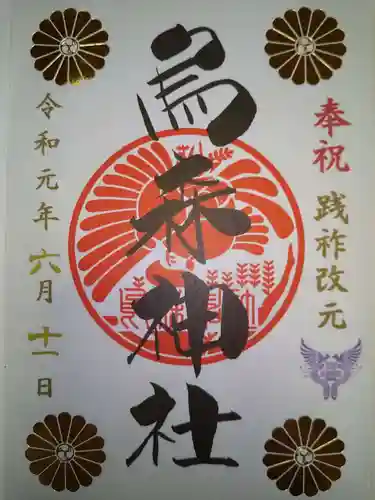 奉祝 践祚改元
烏森神社
令和元年六月十一日